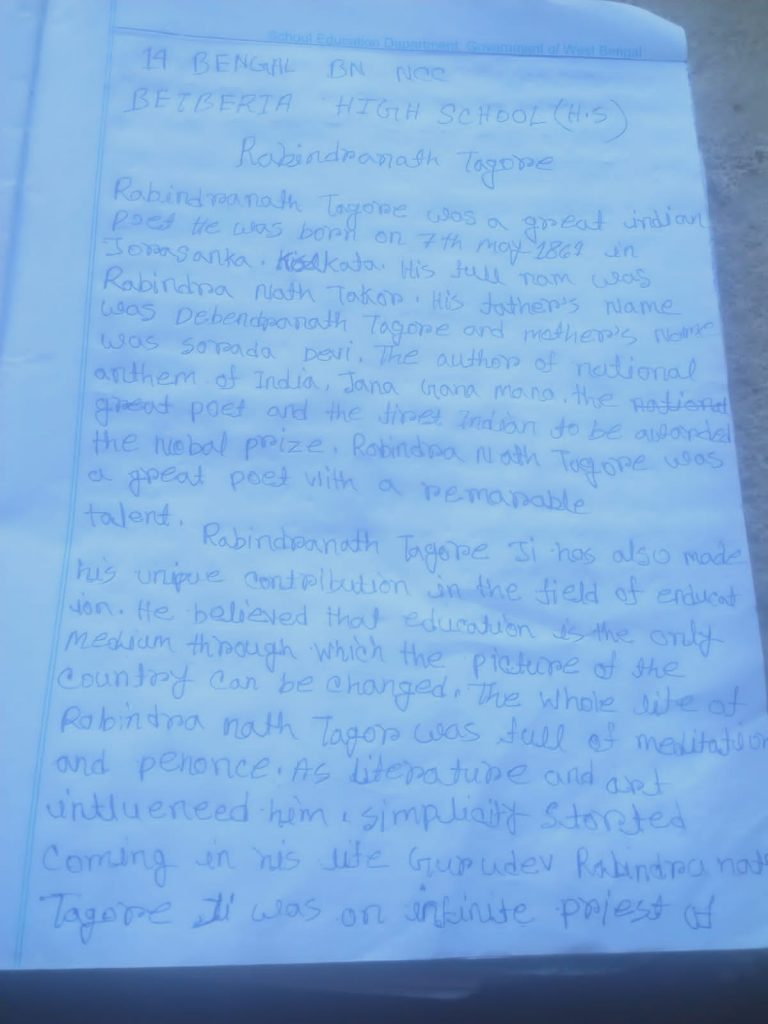 School Education Department, Government of West Bengal
14 BENGAL BN NCC
BETBERIA HIGH SCHOOL (H.S)
Rabindranath Tagore
Rabindranath Tagore was a great indian
poet He was born on 7th may 1861 in
Jorasanka. Kolkata. His full nam was
Rabindra Nath Takor. His father's Name
was Debendranath Tagore and mother's Name
was sorada Devi. The author of national
anthem of India, Jana Gana mana. the national
great poet and the first Indian to be awarded
the Nobal prize. Rabindra Nath Tagore was
a great poet with a remarable
talent.
Rabindranath Tagore Ji has also made
his unique contribution in the field of enducat
ion. He believed that education is the only
medium through which the picture of the
country can be changed. The whole life of
Rabindra nath Tagor was full of meditation
and penonce. As literature and art
influeneed him, simplicity storted
coming in his life Gurudev Rabindra nath
Tagore Ji was an infinite priest of